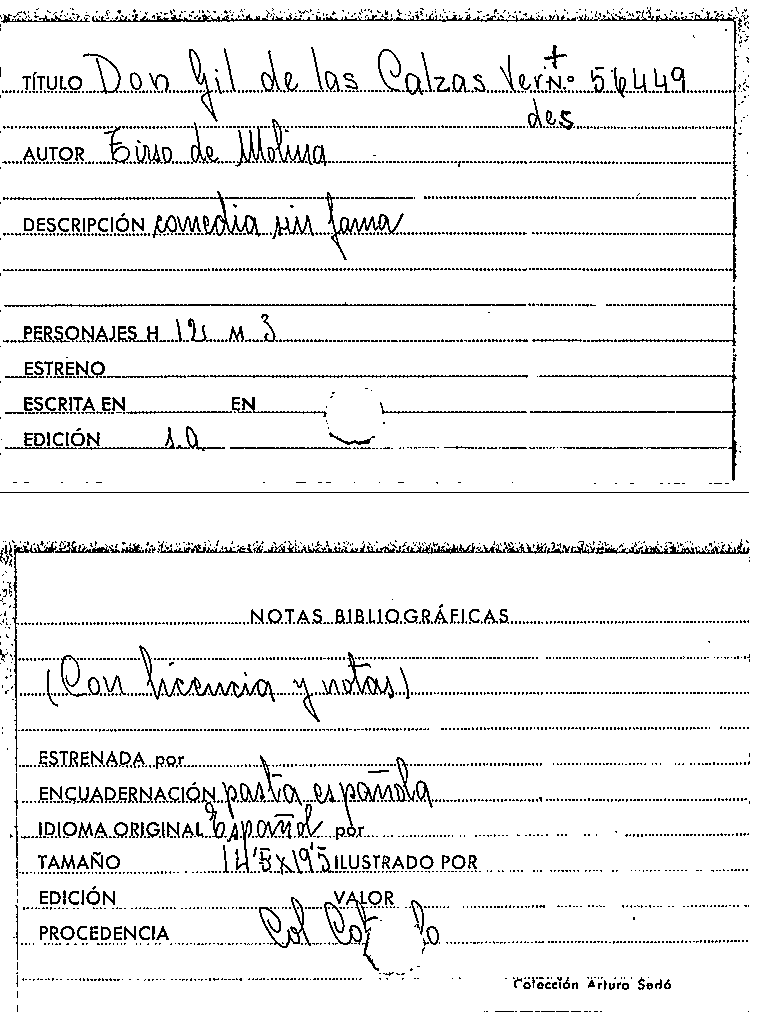 TÍTULO Don Gil de las Calzas Ver N.º 56449
des
AUTOR Tirso de Molina
DESCRIPCIÓN comedia sin fama
PERSONAJES H 12 M 3
ESTRENO
ESCRITA EN EN
EDICIÓN s.a
NOTAS BIBLIOGRÁFICAS
(Con licencia y notas)
ESTRENADA por
ENCUADERNACIÓN pasta española
IDIOMA ORIGINAL Español por
TAMAÑO 14'5x19'5 ILUSTRADO POR
EDICIÓN VALOR
PROCEDENCIA Col
Colección Arturo Sedó